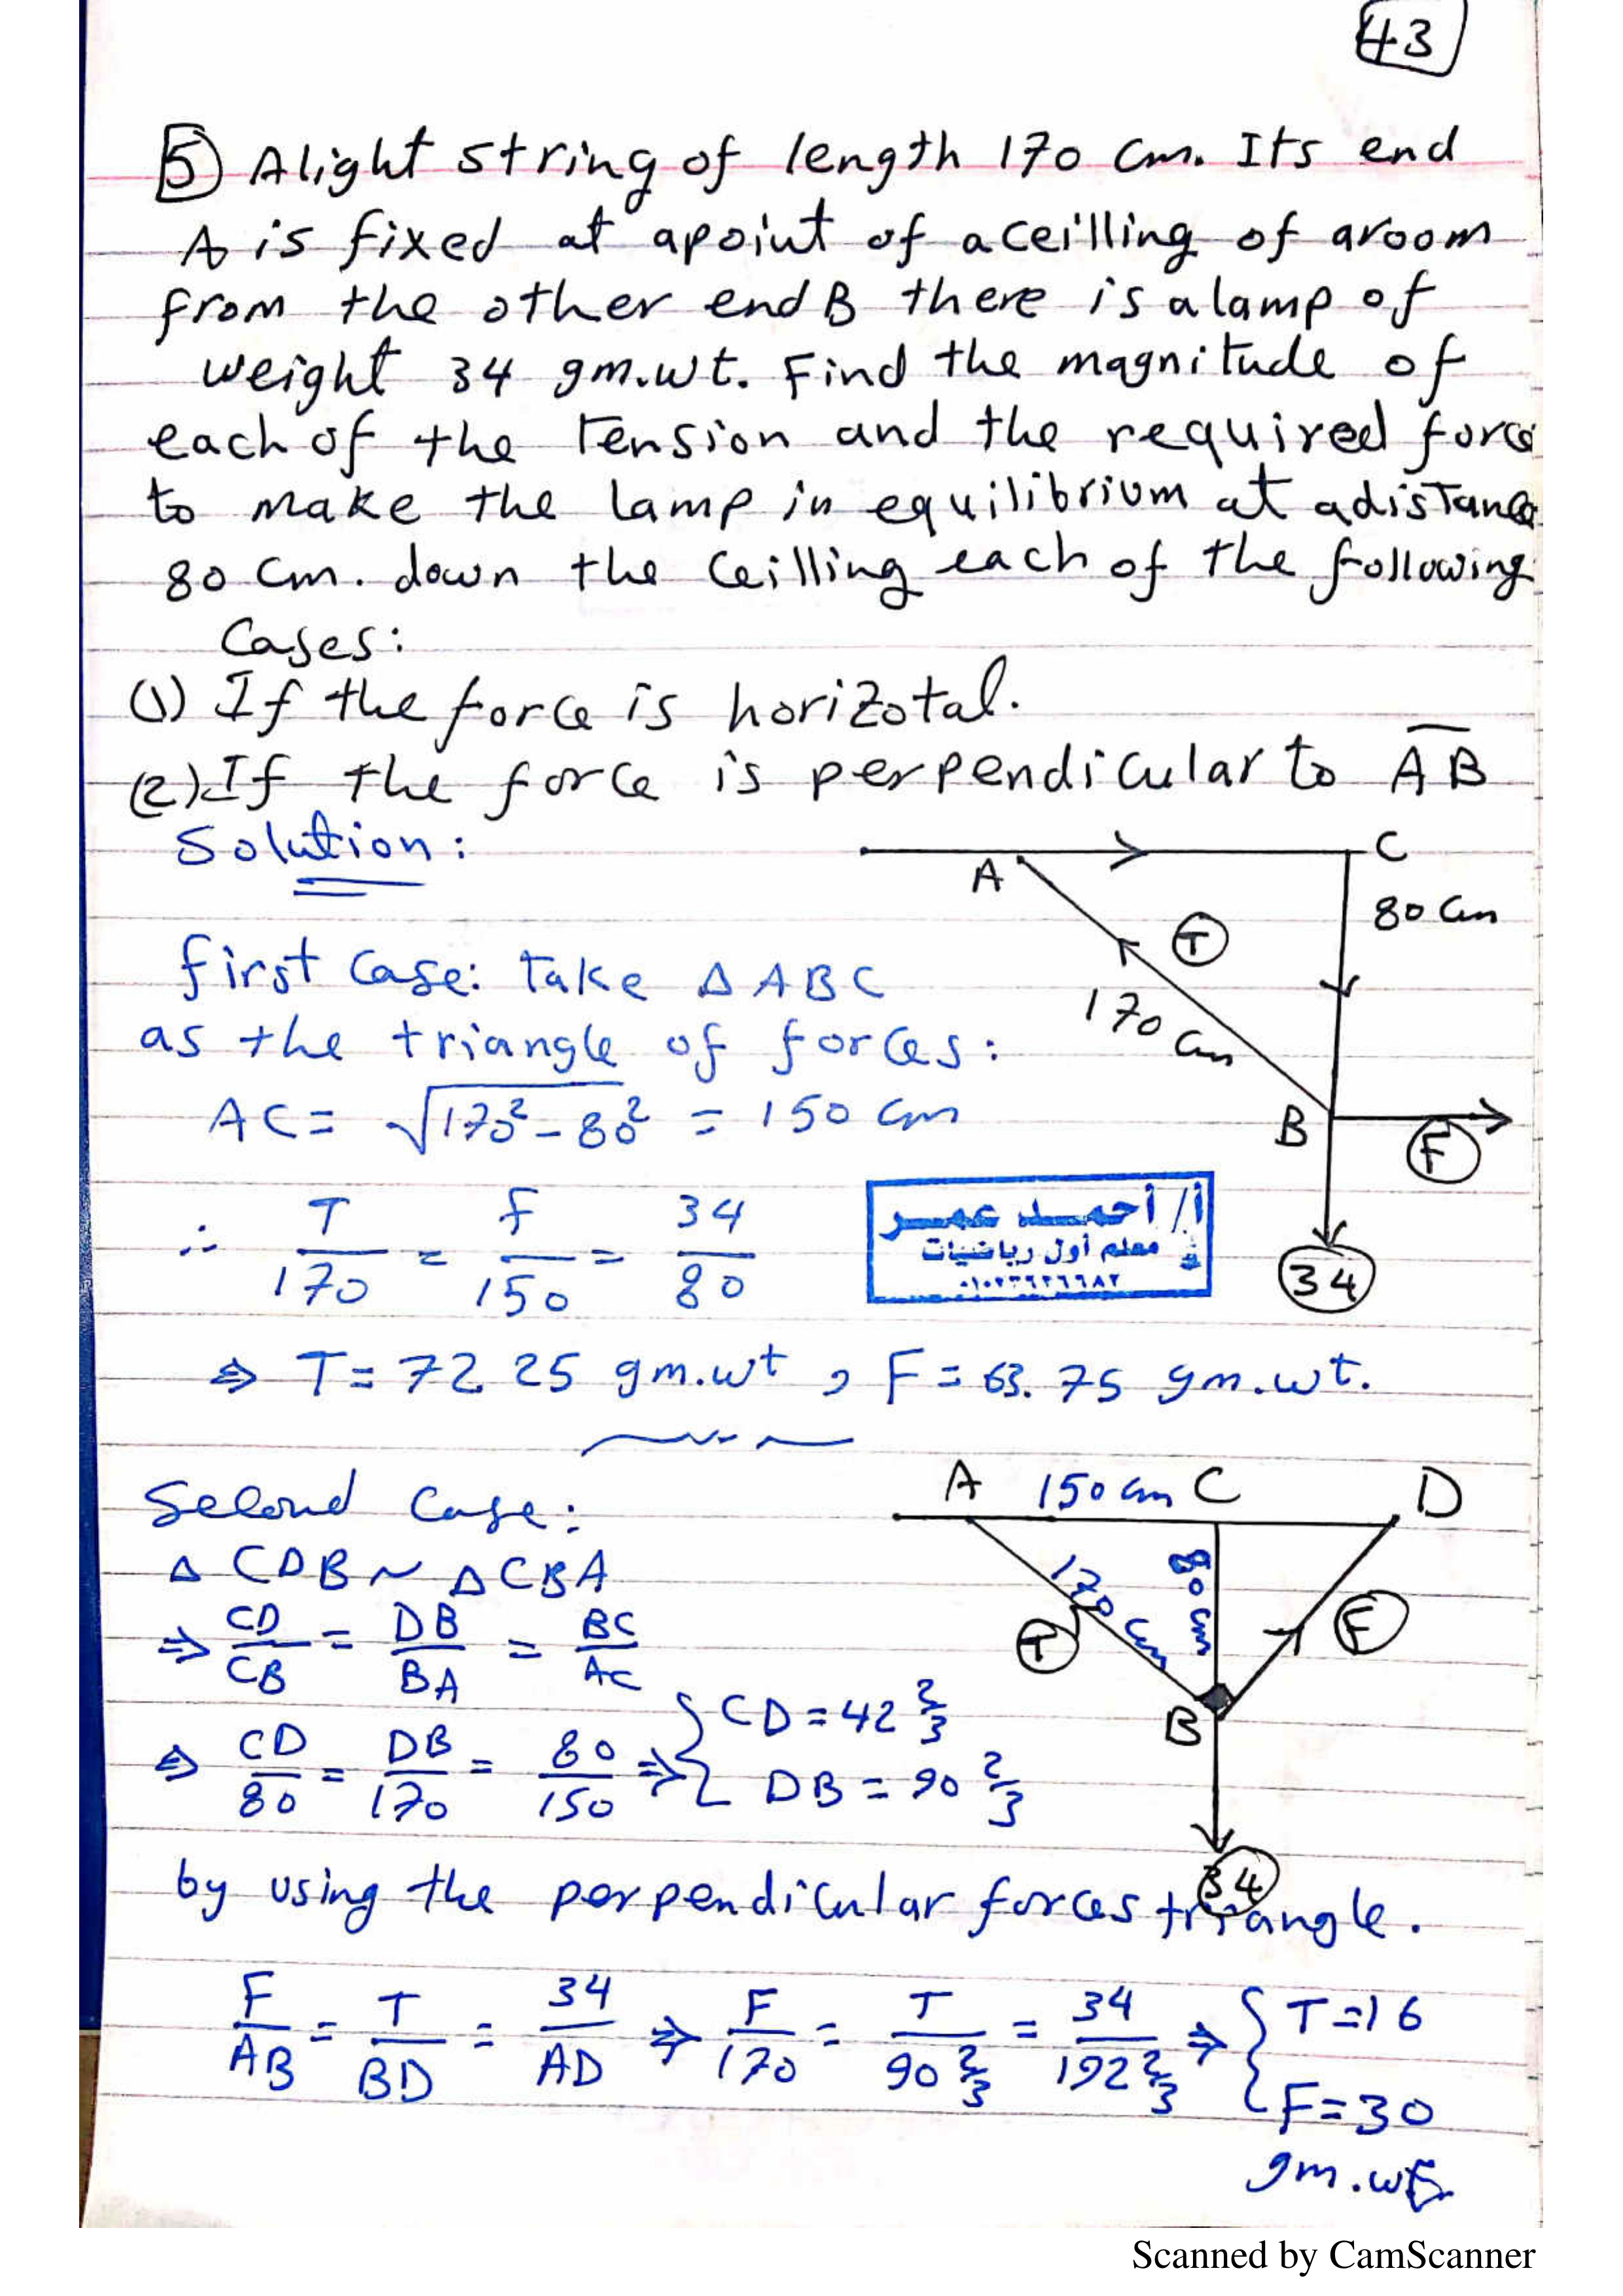 43
5 A light string of length 170 cm. Its end
A is fixed at a point of a ceilling of a room
from the other end B there is a lamp of
weight 34 gm.wt. Find the magnitude of
each of the Tension and the required force
to make the lamp in equilibrium at a distance
80 cm. down the ceilling each of the following
Cases:
(1) If the force is horizotal.
(2) If the force is perpendicular to AB
Solution:
A C
80 cm
T
170 cm
B
F
34
first Case: Take Δ ABC
as the triangle of forces:
AC = √170² - 80² = 150 cm
∴ T/170 = f/150 = 34/80
أ/ أحمد عمر
معلم أول رياضيات
⇒ T = 72.25 gm.wt , F = 63.75 gm.wt.
Second Case:
A 150 cm C D
170 cm 80 cm
T F
B
34
Δ CDB ~ Δ CBA
⇒ CD/CB = DB/BA = BC/AC
⇒ CD/80 = DB/170 = 80/150 ⇒ { CD = 42 2/3
DB = 90 2/3
by using the perpendicular forces triangle.
F/AB = T/BD = 34/AD ⇒ F/170 = T/90 2/3 = 34/192 2/3 ⇒ { T = 16
F = 30
gm.wt.
Scanned by CamScanner